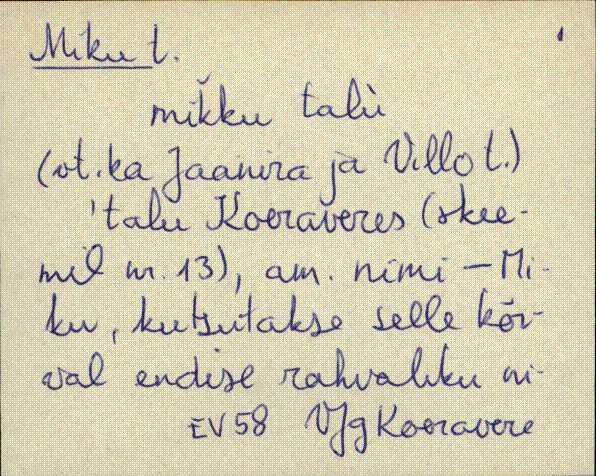 Miku t.
mĭkku talù
(vt. ka Jaanira ja Villo t.)
'talu Koeraveres (skee-
mil nr. 13), am. nimi – Mi-
ku, kutsutakse selle kõr-
val endise rahvaliku ni-
EV 58 VJg Koeravere